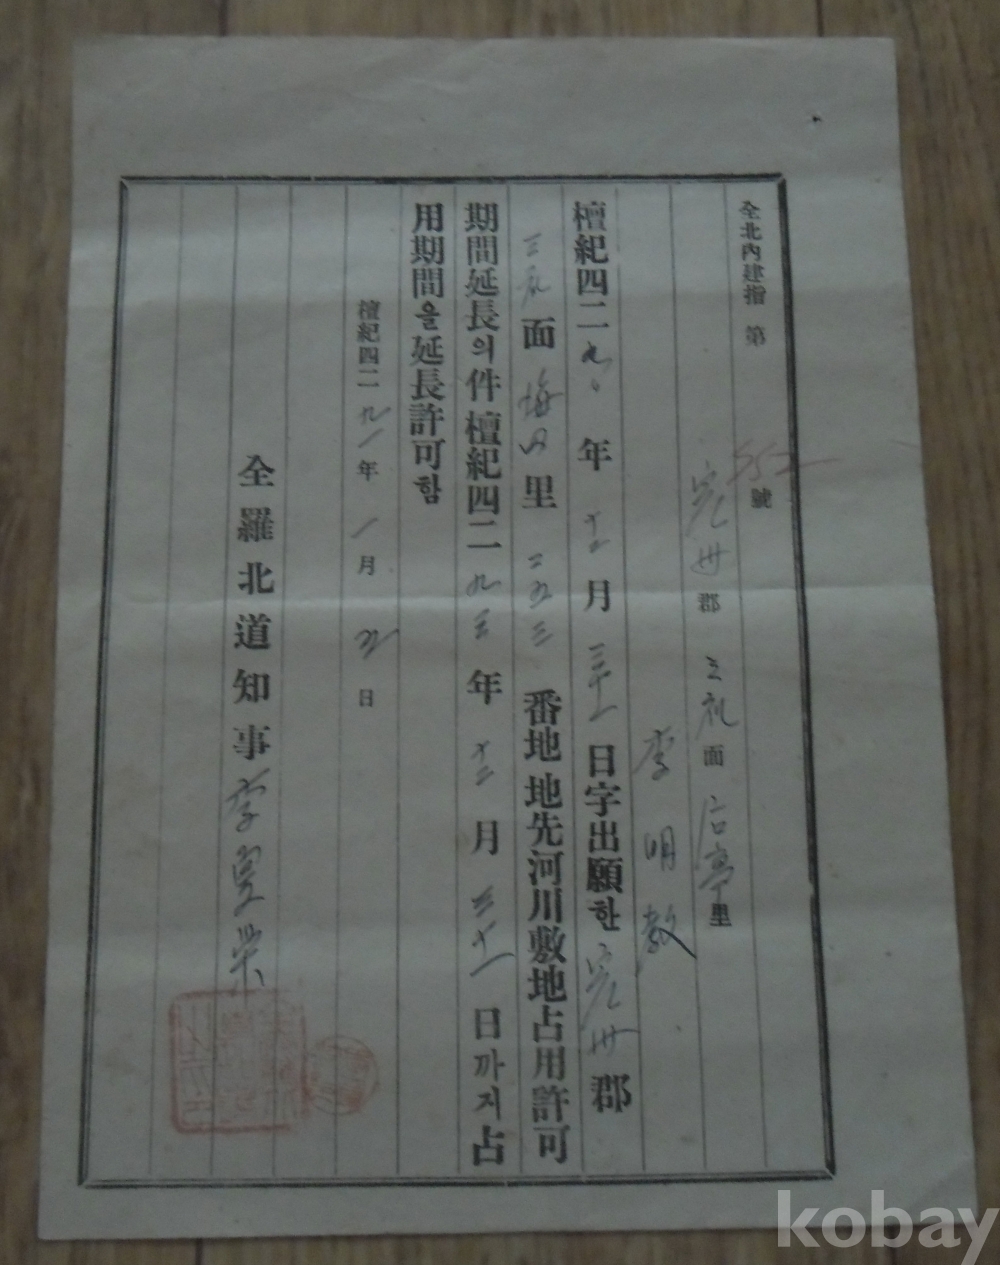 全北內建指 第 552 號
完州郡 三礼面 后亭里
李明敎
檀紀四二九〇年 十二月 三十一日字出願한 完州郡
三礼面 海田里 二五三 番地 地先河川敷地占用許可
期間延長의件檀紀四二九三年 十二月 三十一日까지占
用期間을延長許可함
檀紀四二九一年 一月 九日
全羅北道知事 李
kobay